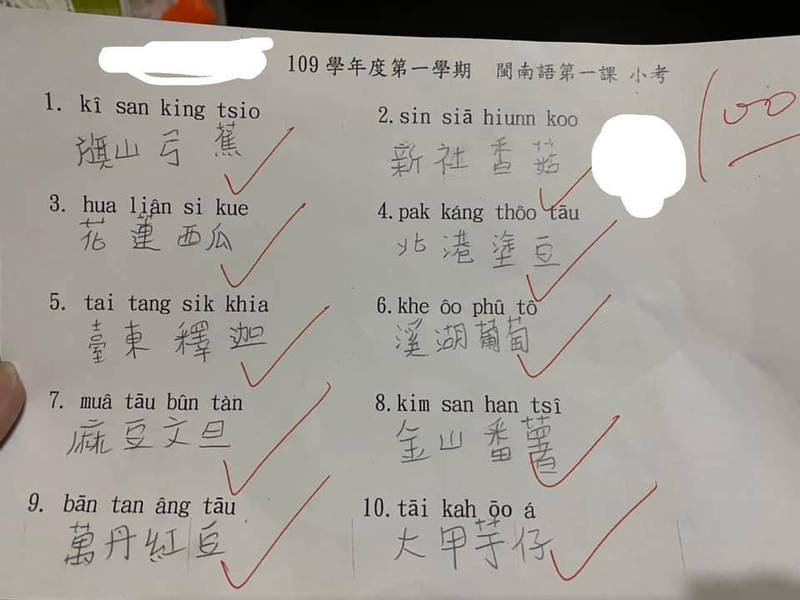 109 學年度第一學期 閩南語第一課 小考
100
1. kî san king tsio
旗山弓蕉
2. sin siā hiunn koo
新社香菇
3. hua liân si kue
花蓮西瓜
4. pak káng thôo tāu
北港塗豆
5. tai tang sik khia
臺東釋迦
6. khe ôo phû tô
溪湖葡萄
7. muâ tāu bûn tàn
麻豆文旦
8. kim san han tsî
金山番薯
9. bān tan âng tāu
萬丹紅豆
10. tāi kah ōo á
大甲芋仔